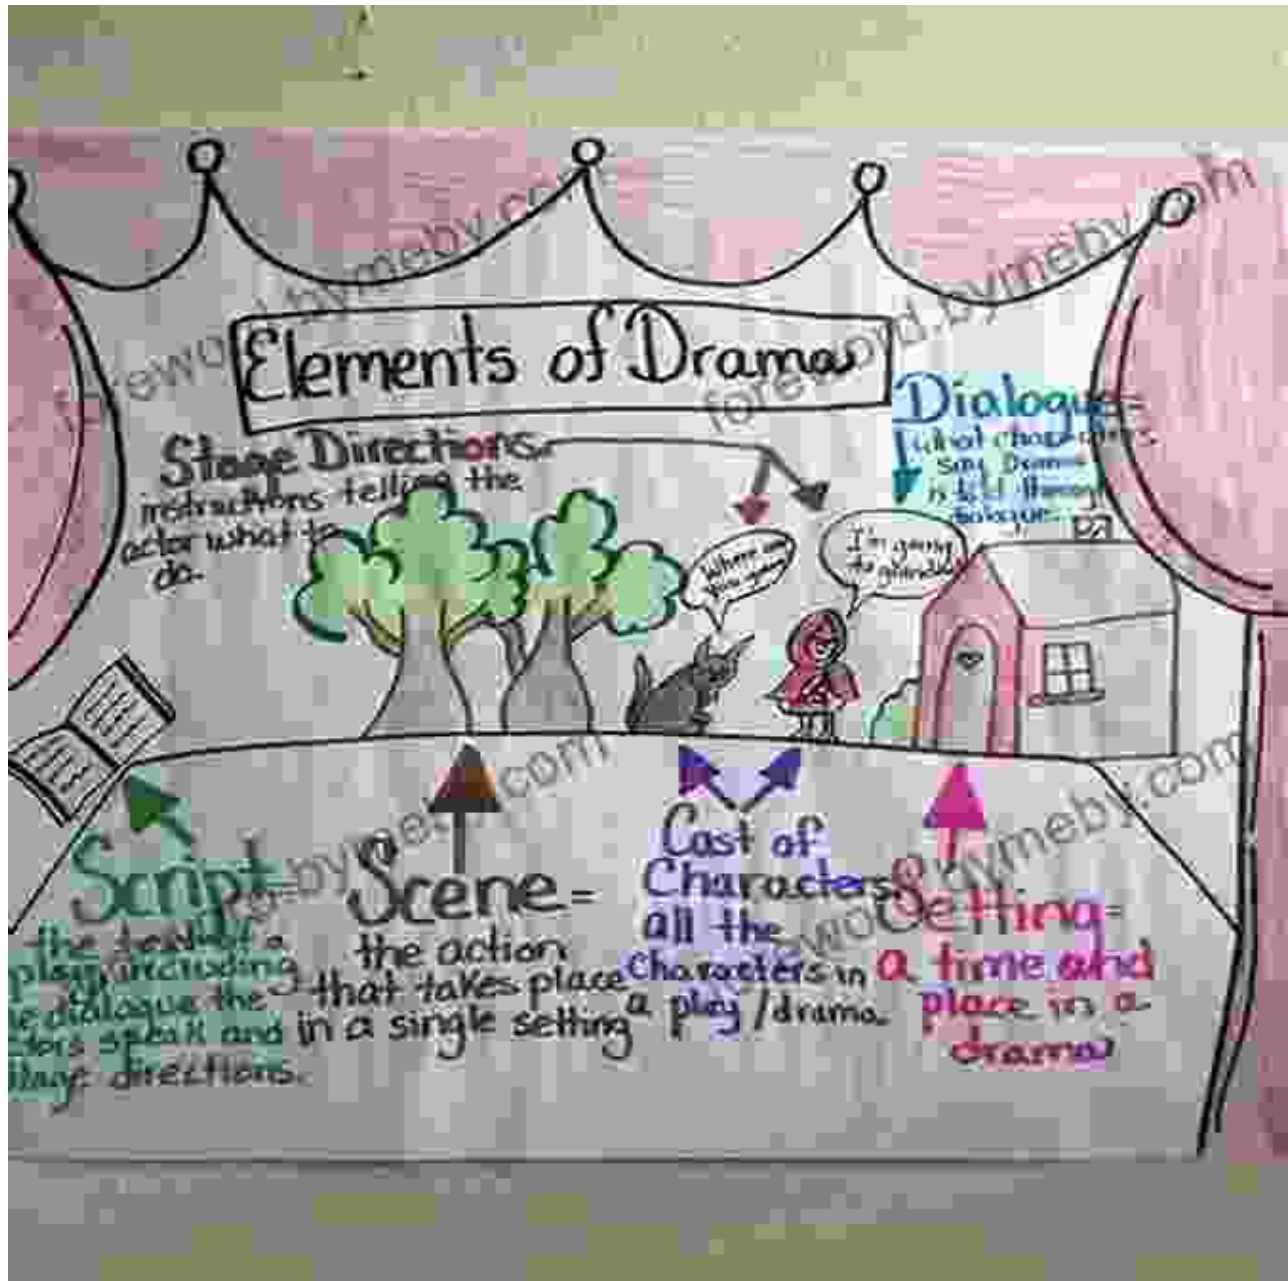 Elements of Drama
Stage Directions:
instructions telling the
actor what to
do.
Dialogue=
what characters
say. Drama
is told through
dialogue.
Where are
you going
I'm going
to
Script=
the
play including
dialogue the
speak and
directions.
Scene=
the action
that takes place
in a single setting
Cast of
Characters
all the
characters in
a play/drama.
Setting=
a time and
place in a
drama
foreword.bymeby.com
foreword.bymeby.com
bymeby.com
bymeby.com